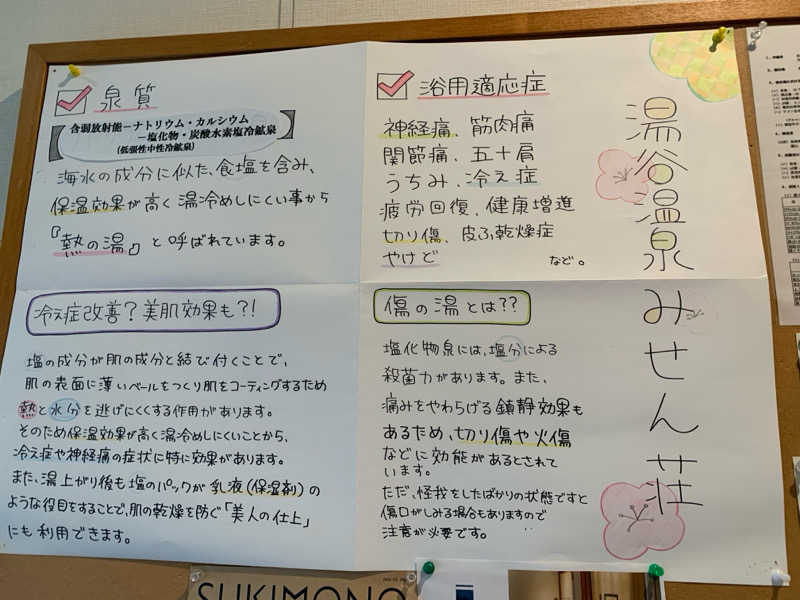 泉質
含弱放射能－ナトリウム・カルシウム
－塩化物・炭酸水素塩冷鉱泉
(低張性中性冷鉱泉)
海水の成分に似た、食塩を含み、
保温効果が高く湯冷めしにくい事から
『熱の湯』と呼ばれています。
浴用適応症
神経痛、筋肉痛
関節痛、五十肩
うちみ、冷え症
疲労回復、健康増進
切り傷、皮ふ乾燥症
やけど など。
湯谷温泉みせん荘
冷え症改善?美肌効果も?!
塩の成分が肌の成分と結び付くことで、
肌の表面に薄いベールをつくり肌をコーティングするため
熱と水分を逃げにくくする作用があります。
そのため保温効果が高く湯冷めしにくいことから、
冷え症や神経痛の症状に特に効果があります。
また、湯上がり後も塩のパックが乳液(保湿剤)の
ような役目をすることで、肌の乾燥を防ぐ「美人の仕上」
にも利用できます。
傷の湯とは??
塩化物泉には、塩分による
殺菌力があります。また、
痛みをやわらげる鎮静効果も
あるため、切り傷や火傷
などに効能があるとされて
います。
ただ、怪我をしたばかりの状態ですと
傷口がしみる場合もありますので
注意が必要です。
SUKIMONO